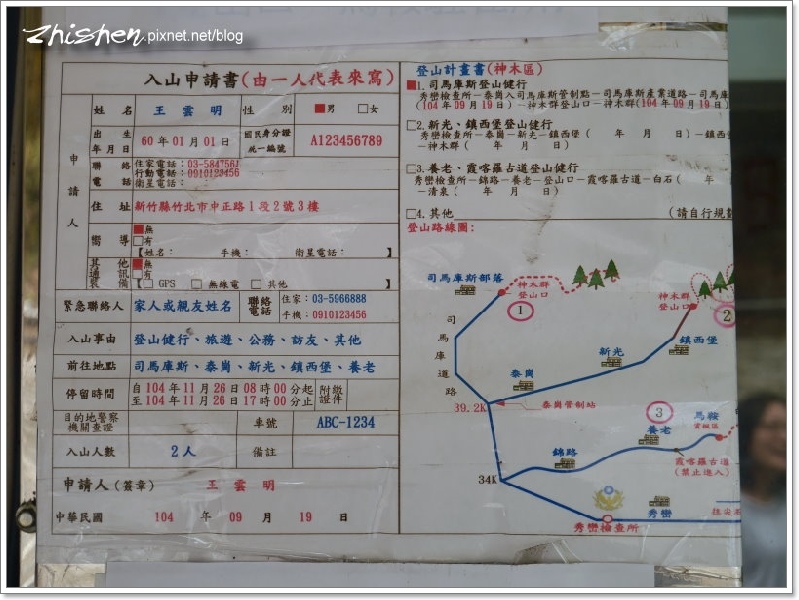 zhishen.pixnet.net/blog
入山申請書(由一人代表來寫)
姓名 王雲明 性別 ■男 □女
出生年月日 60年01月01日 國民身分證統一編號 A123456789
申請人
聯絡電話
住家電話:03-5847561
行動電話:0910123456
衛星電話:
住址 新竹縣竹北市中正路1段2號3樓
嚮導 ■無
□有
【姓名: 手機: 衛星電話: 】
其他通訊裝備 ■無
□有
【□GPS □無線電 □其他 】
緊急聯絡人 家人或親友姓名 聯絡電話 住家:03-5966888
手機:0910123456
入山事由 登山健行、旅遊、公務、訪友、其他
前往地點 司馬庫斯、泰崗、新光、鎮西堡、養老
停留時間 自104年11月26日08時00分起
至104年11月26日17時00分止 附繳證件
目的地警察機關查證 車號 ABC-1234
入山人數 2人 備註
申請人(簽章) 王雲明
中華民國 104 年 09 月 19 日
登山計畫書(神木區)
■1.司馬庫斯登山健行
秀巒檢查所－泰崗入司馬庫斯管制點－司馬庫斯產業道路－司馬庫斯
(104年09月19日)－神木群登山口－神木群(104年09月19日)
□2.新光、鎮西堡登山健行
秀巒檢查所－泰崗－新光－鎮西堡( 年 月 日)－鎮西
－神木群( 年 月 日)
□3.養老、霞喀羅古道登山健行
秀巒檢查所－錦路－養老－登山口－霞喀羅古道－白石( 年
－清泉( 年 月 日)
□4.其他 (請自行規劃
登山路線圖:
司馬庫斯部落
神木群登山口
①
神木群登山口
②
司馬庫道路
新光
鎮西堡
泰崗
39.2K
泰崗管制站
③
馬鞍
養老
錦路
霞喀羅古道
(禁止進入)
34K
秀巒
秀巒檢查所